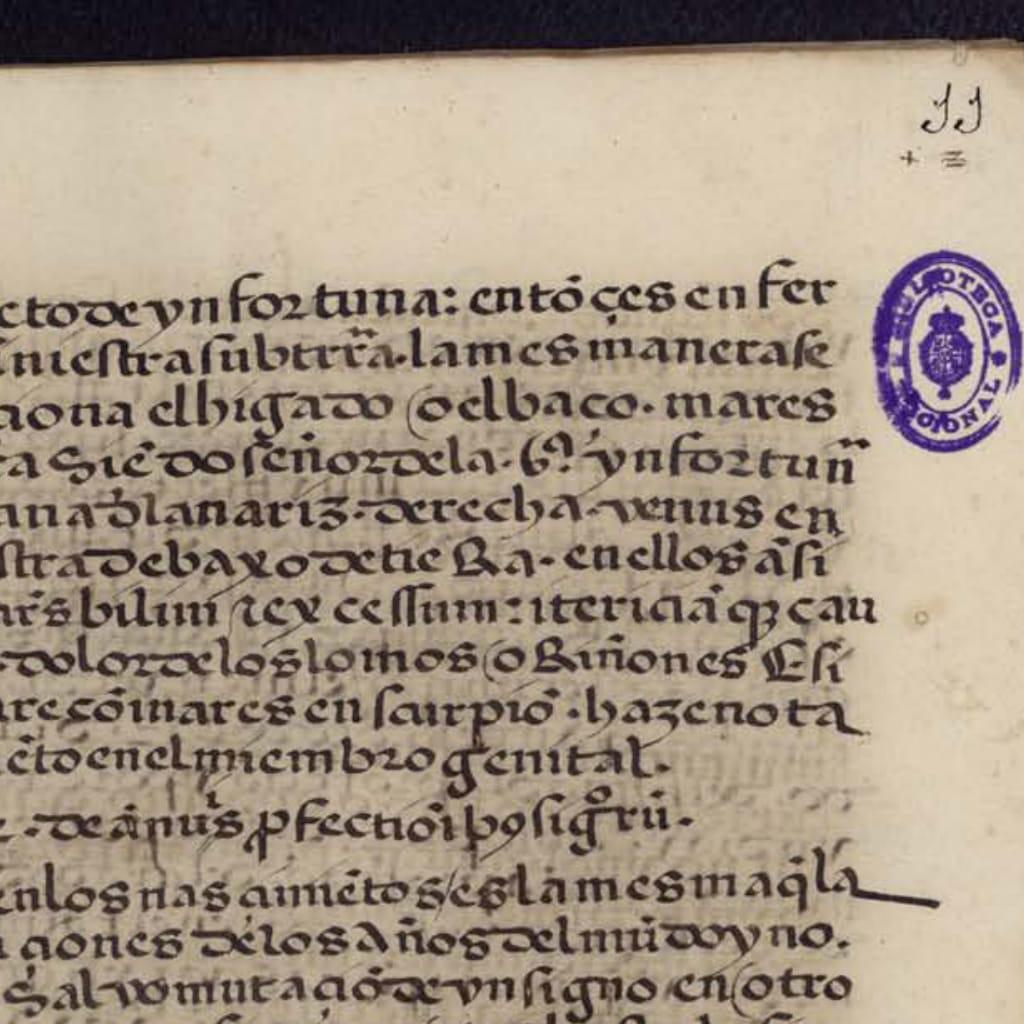 JJ
BIBLIOTECA NACIONAL
cto de ynfortuna: entōçes enfer
niestra subtrr̃a. la mes manera se
çiona el higado (o el baço. mares
siēdo señor de la. 6ª. ynfortun̄
d̄la nariz. derecha. venus en
stra debaxo de tieRRa. en ellos āsi
bilini excessum: itericiā q̄ cau
dolor de los lomos (o Riñones E si
cō mares en scurpiō. haze nota
ēto en el miembro genital.
.de ānus ꝓfectiōibꝯ sigrū.
en los nasçimiētos/es la mesma q̄ la
çiones de los Años del mūdo y no.
Saluo mutaçiō de vn signo en (otro